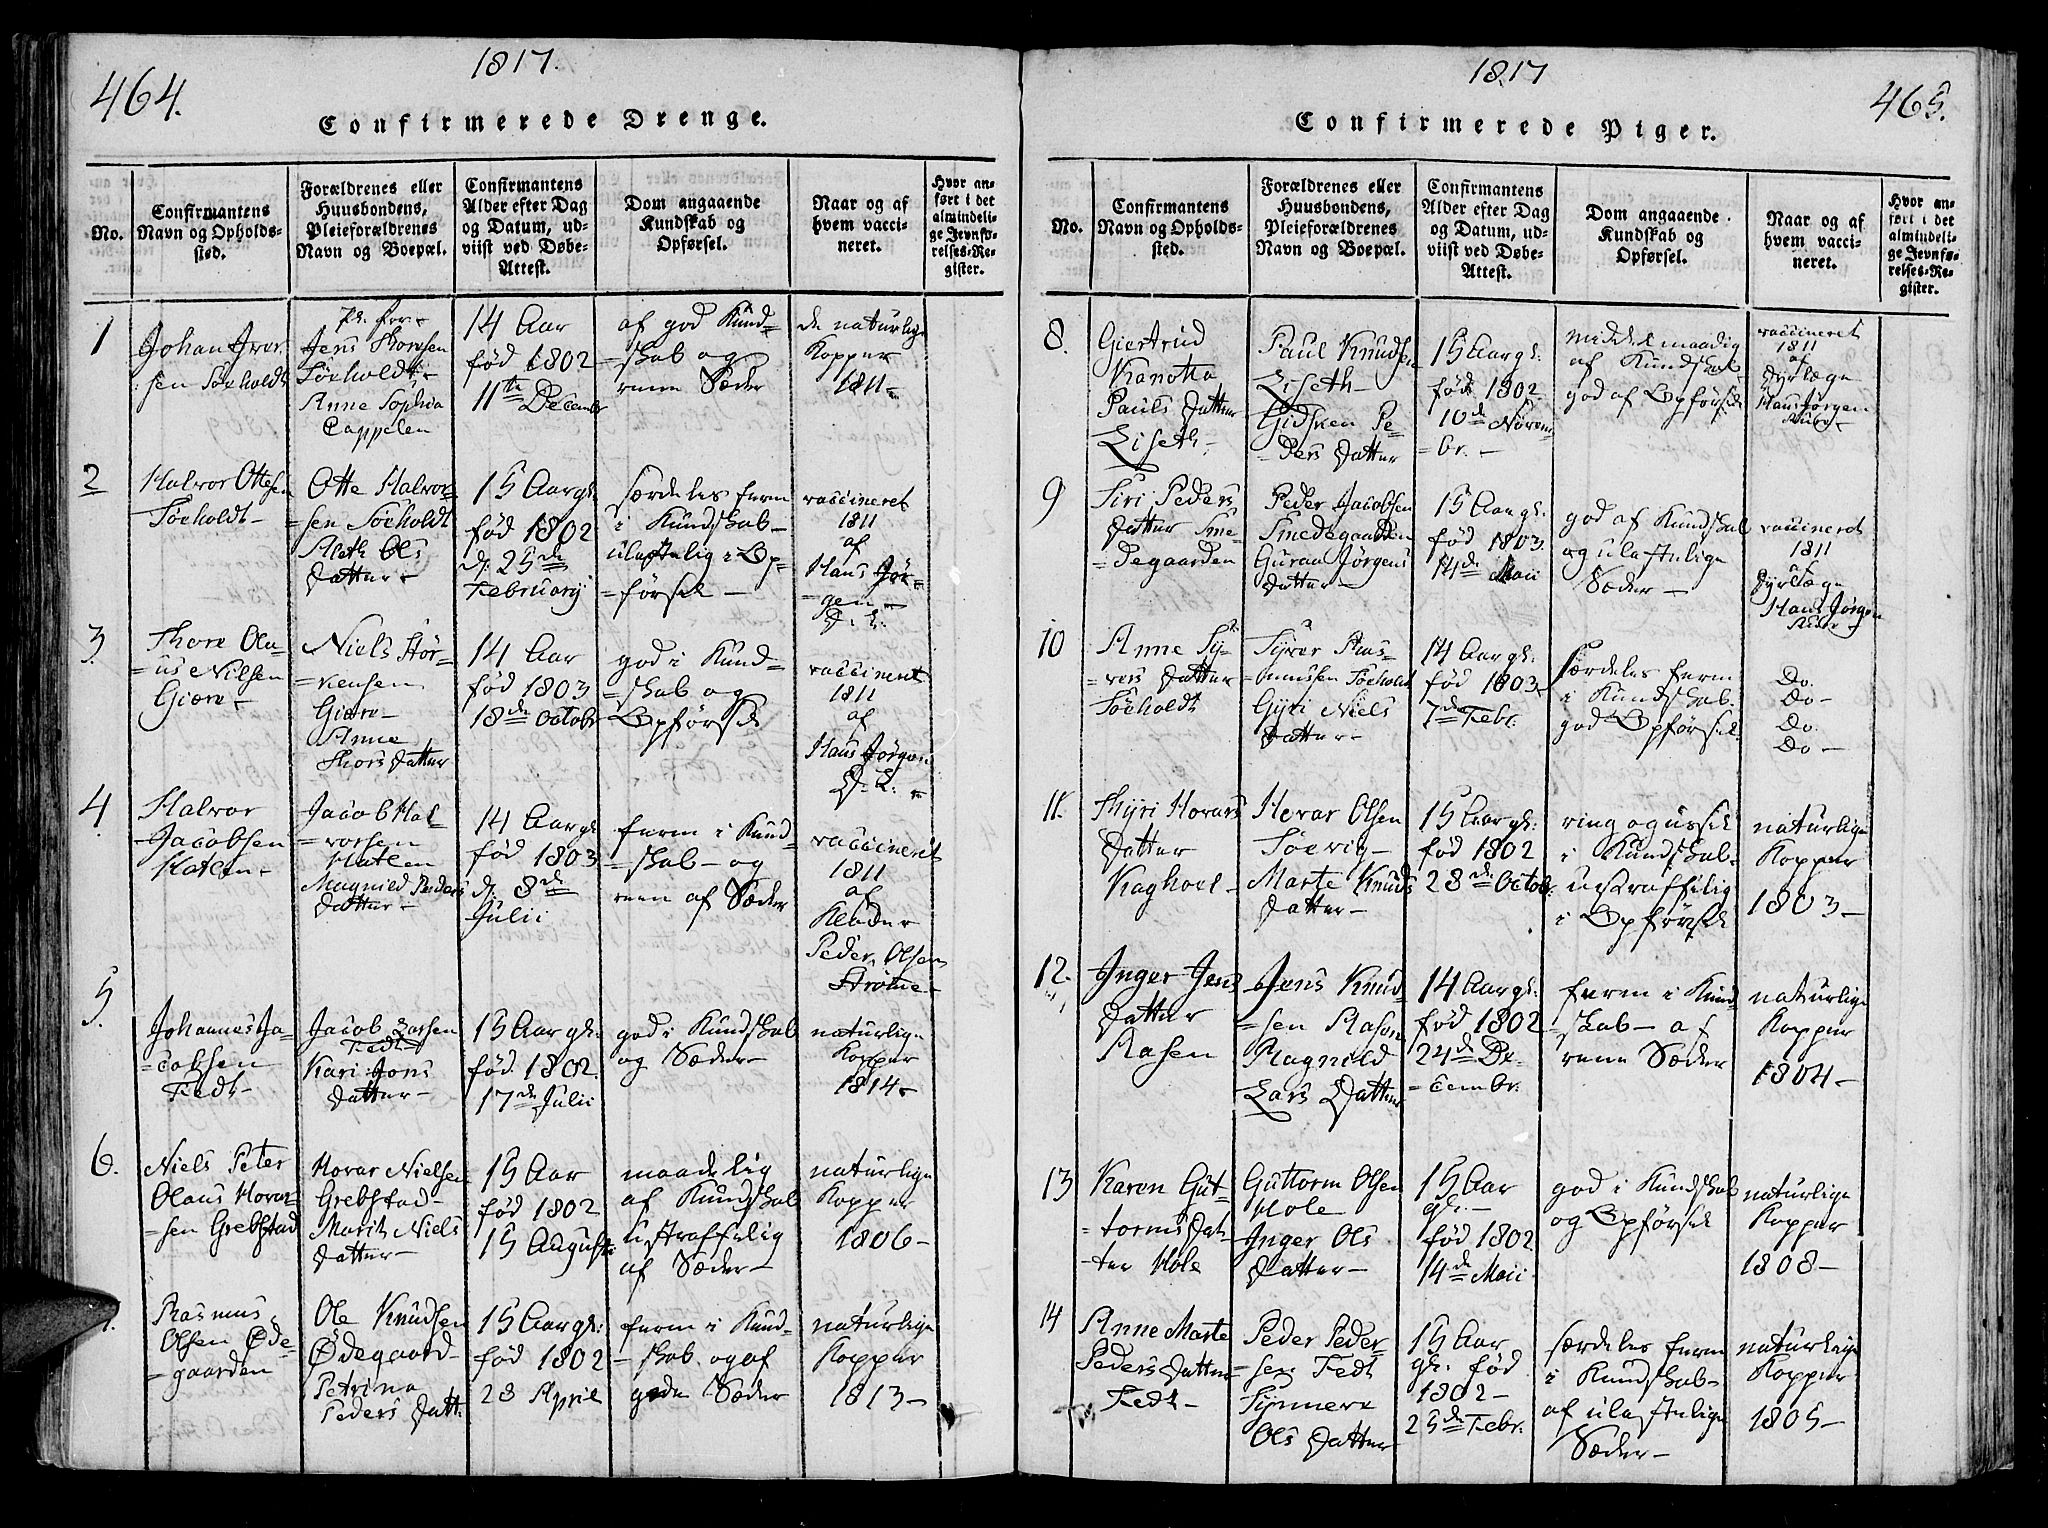 464.
1817.
Confirmerede Drenge.
No.
Confirmantens
Navn og Opholds-
sted.
Forældrenes eller
Huusbondens,
Pleieforældrenes
Navn og Boepæl.
Confirmantens
Alder efter Dag
og Datum, ud-
viist ved Døbe-
Attest.
Dom angaaende
Kundskab og
Opførsel.
Naar og af
hvem vacci-
neret.
Hvor an-
ført i det
almindeli-
ge Jevnfø-
relses-Re-
gister.
1
Johan Iver-
sen Søeholdt
Pl. for.
Jens
Søeholdt
Anne Sophia
Cappelen
14 Aar
fød 1802
11te December
af god Kund-
skab og
rene Sæder
de naturlige
Kopper
1811
2
Halvor Ottesen
Søeholdt
Otte Halvor-
sen Søeholdt
Ols
Datter
15 Aar gl.
fød 1802
d. 25de
February
særdeles ferm
i Kundskab
ulastelig i Op-
førsel
vaccineret
1811
af
Hans Jør-
gen
D. L.
3.
Thore Ola-
us Nilsen
Giære
Niels Stör-
kersen
Giære
Anne
Thors Datter
14 Aar
fød 1803
18de Octobr
god i Kund-
skab og
Opførsel
vaccineret
1811
af
Hans Jørgen
D. L.
4
Halvor
Jacobsen
Hatlen
Jacob Hal-
vorsen
Hatlen
Magnild Peders
Datter
14 Aar gl.
fød 1803
d. 8de
Julii
ferm i Kund-
skab og
reen af Sæder
vaccineret
1811
af
Klokker
Peder Olsen
Strømme
5.
Johannes Ja-
cobsen
Fedt
Jacob Larsen
Fedt
Kari Jons
Datter
15 Aar gl.
fød 1802.
17de Julii
god i Kundskab
og Sæder
naturlige
Kopper
1814
6.
Niels Peter
Olaus Hovar-
sen Grebstad
Hovar Nielsen
Grebstad
Marit Niels
Datter
15 Aar
fød 1802
15 August
maadelig
af Kundskab
ustraffelig
af Sæder
naturlige
Kopper
1806
Rasmus
Olsen Øde-
gaarden
Ole Knudsen
Ødegaard
Petrina
Peders Datt.
15 Aar gl.
fød 1802
28 April
ferm i Kund-
skab og af
gode Sæder
naturlige
Kopper
1813
1817
465.
Confirmerede Piger.
No.
Confirmantens
Navn og Opholds-
sted.
Forældrenes eller
Huusbondens,
Pleieforældrenes
Navn og Boepæl.
Confirmantens
Alder efter Dag
og Datum, ud-
viist ved Døbe-
Attest.
Dom angaaende
Kundskab og
Opførsel.
Naar og af
hvem vacci-
neret.
Hvor an-
ført i det
almindeli-
ge Jevnfø-
relses-Re-
gister.
8.
Giertrud
Kanutha
Pauls Datter
Liseth
Paul Knudsen
Liseth
Gidsken Pe-
ders Datter
15 Aar gl.
fød 1802
10de Novem-
br.
middelmaadig
af Kundskab
god af Opførsel
vaccineret
1811
af
Dyrlæge
Hans Jørgen
9
Siri Peders
Datter Sme-
degaarden
Peder Jacobsen
Smedegaarden
Guraa Jørgens
Datter
15 Aar gl.
fød 1803.
14de Maii
god af Kundskab
og ulastelige
Sæder
vaccineret
1811
af
Dyrlæge
Hans Jørgen
10
Anne Sy-
vers Datter
Söeholdt
Syver Ras-
mussen Söeholdt
Gyri Niels
Datter
14 Aar gl.
fød 1803
7de Febr.
særdeles ferm
i Kundskab
god Opførsel
Do.
Do
Do.
Do
11.
Thyri Hovars
Datter
Hovar Olsen
Söevig
Marte Knuds
Datter
15 Aar gl.
fød 1802
28de Octobr.
i Kundskab
ustraffelig
i Opførsel
naturlige
Kopper
1803
12.
Inger Jens
Datter
Aasen
Jens Knud-
sen Aasen
Ragnild
Lars Datter
14 Aar gl.
fød 1802
24de De-
cembr.
ferm i Kund-
skab af
rene Sæder
naturlige
Kopper
1804
13
Karen Gut-
torms Dat-
ter Hole
Guttorm Olsen
Hole
Inger Ols
Datter
15 Aar
gl.
fød 1802
14de Maii
god i Kundskab
og Opførsel
naturlige
Kopper
1808
14
Anne Marte
Peders Datter
Fedt
Peder Peder-
sen Fedt
Synneve
Ols Datter
15 Aar
gl. fød
1802
25de Febr.
særdeles ferm
i Kundskab
af ulastelige
Sæder
naturlige
Kopper
1805